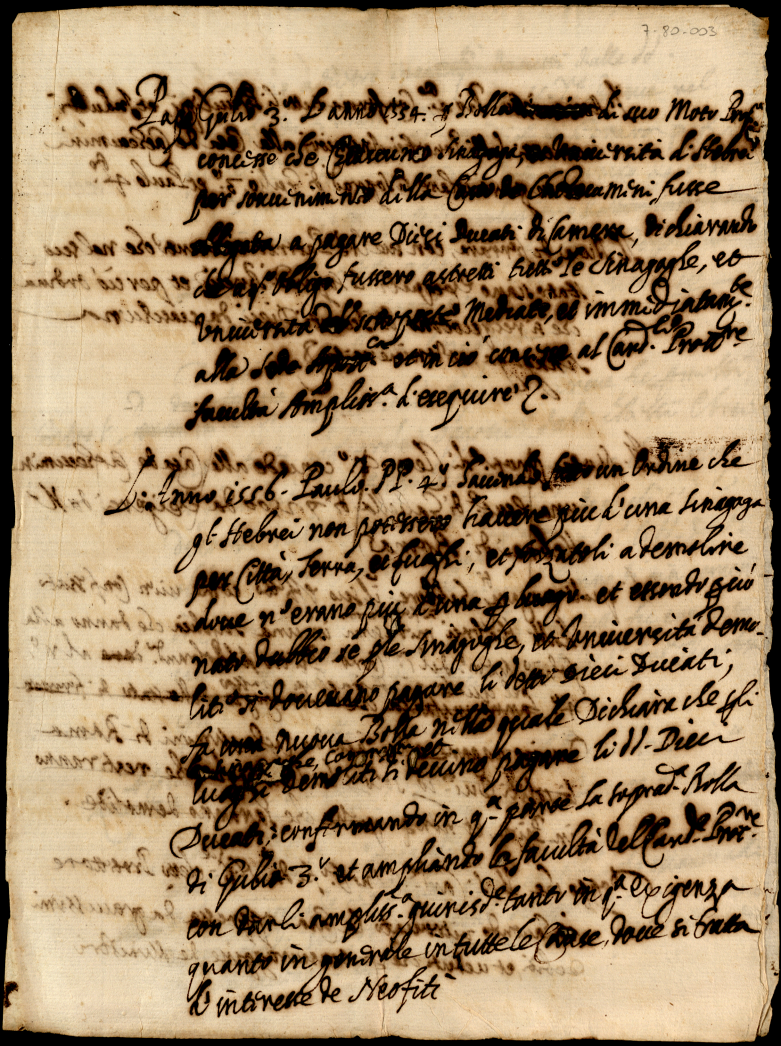 7-80-003
Papa Giulio 3.º L'anno 1554. p Bolla di suo Moto Prop.º
concesse che Ciascuna Sinagoga, et Università d'Hebrei
per sovenimento della Casa de Chatecumini, fusse
obligata a pagare Dieci Ducati di Camera, dichiarando
che a q.º obligo fussero astretti tutte le Sinagoghe, et
Università Mediate, et immediatam.te
alla Sede Apost.ca et in ciò concesse al Card.le Prott.re
facultà Ampliss.a d'esequire
L'Anno 1556. Paulo PP. 4.º facendo un Ordine che
gl'Hebrei non potessero havere più d'una Sinagoga
per Città, Terra, et luoghi, et forzatoli a demolire
dove n'erano più d'una p luogo et essendo p ciò
nato dubbio se p le Sinagoghe, et Università demo-
lite si dovevano pagare li detti Dieci Ducati,
fa una nuova Bolla nella quale Dichiara che p li
luoghi demoliti si devino pagare li dd. Dieci
Ducati, confirmando in q.a parte la soprad.a Bolla
di Giulio 3.º et ampliando la facultà del Card.le Prot.re
con darli ampliss.a giurisd.e tanto in q.a exigenza
quanto in generale in tutte le Cause, dove si tratta
d'interesse de Neofiti